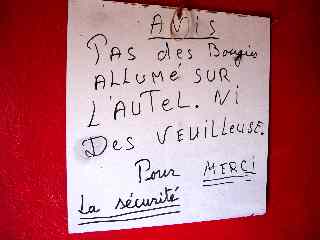 AVIS
PAS des Bougies
ALLUMÉ SUR
L'AUTEL. Ni
Des VEUILLEUSE.
Pour MERCI
La sécurité